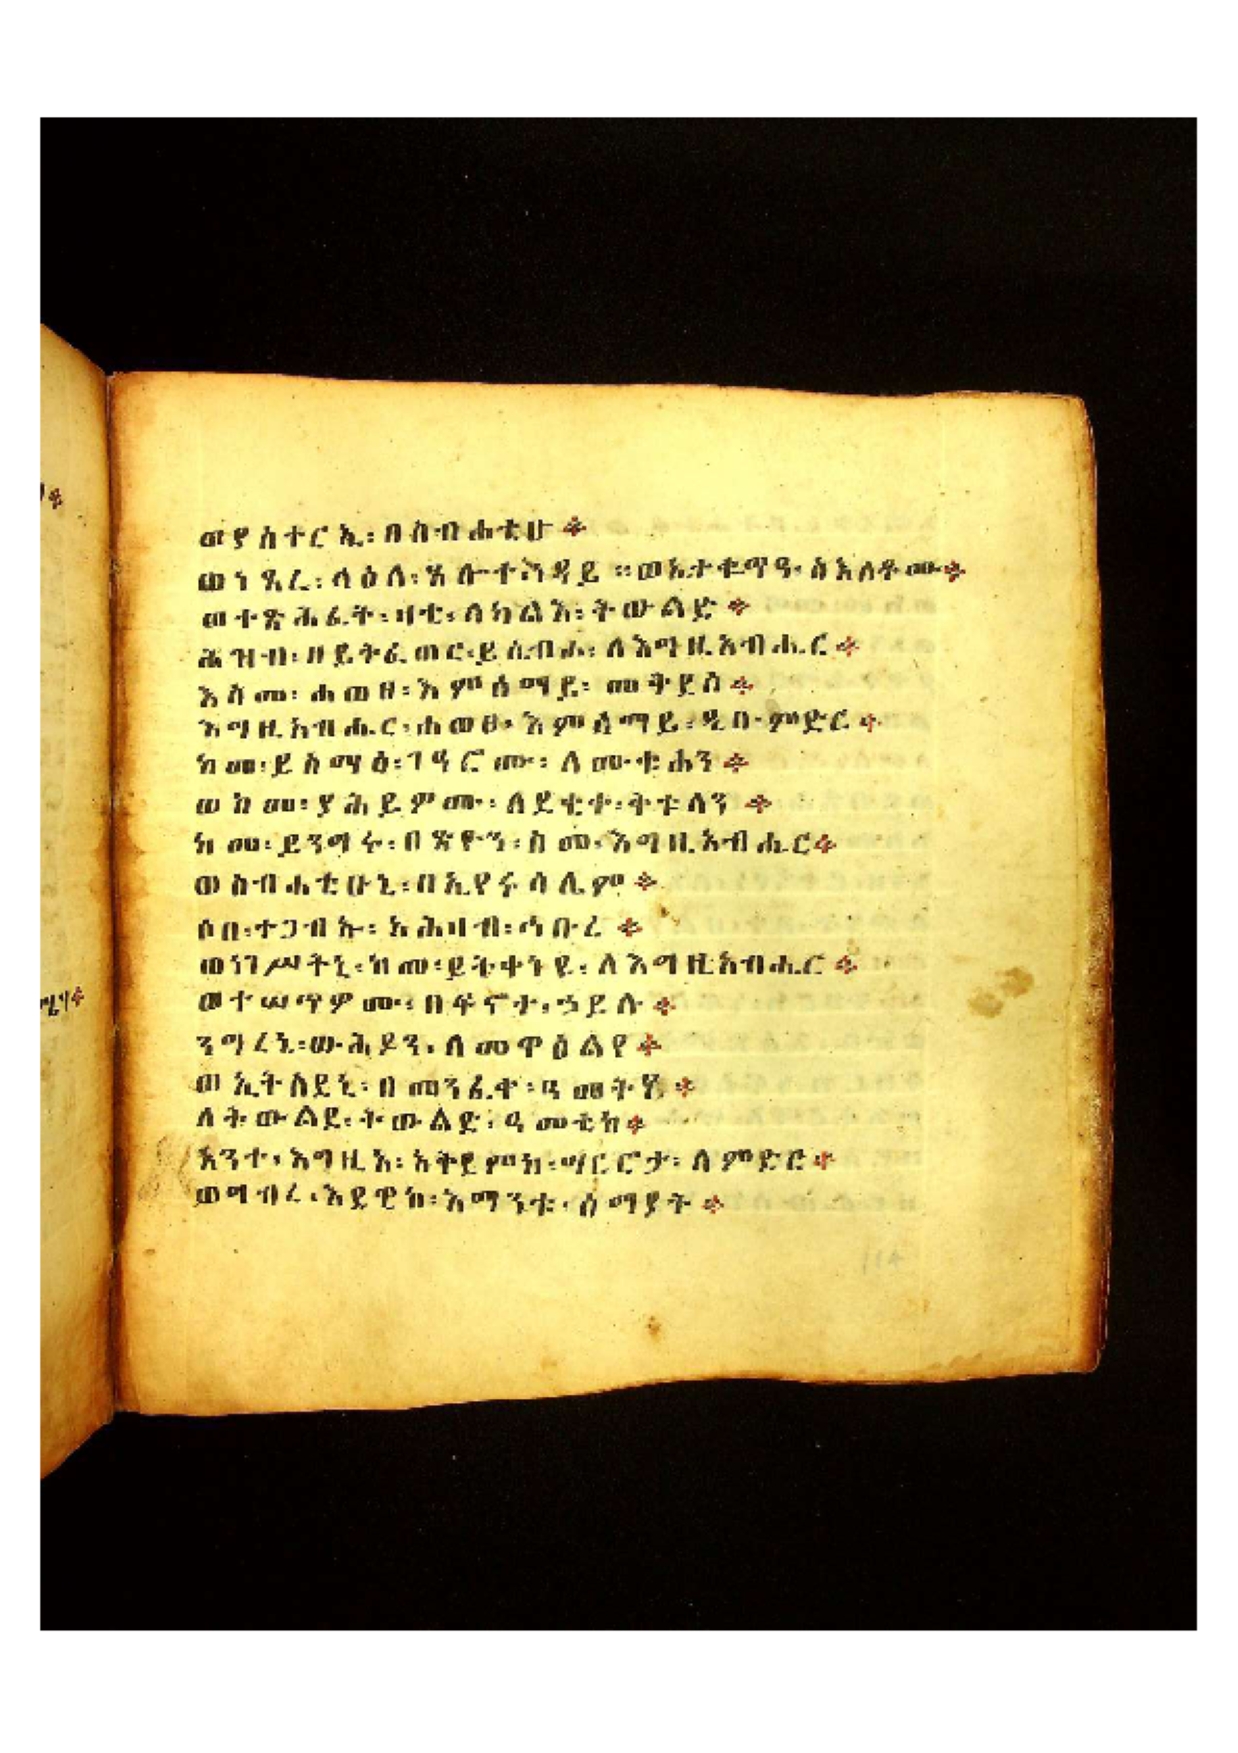 ወያስተርኢ፡ በስብሐቲሁ ፨
ወነጸረ፡ ላዕለ፡ ጸሎተ፡ ነዳይ ። ወኢተቈጥዓ፡ ስእለቶሙ ፨
ወተጽሕፈት፡ ዛቲ፡ ለካልእ፡ ትውልድ ፨
ሕዝብ፡ ዘይትፈጠር፡ ይሴብሖ፡ ለእግዚአብሔር ፨
እስመ፡ ሐወፀ፡ እምሰማይ፡ መቅደሱ ፨
እግዚአብሔር፡ ሐወፀ፡ እምሰማይ፡ ዲበ፡ ምድር ፨
ከመ፡ ይስማዕ፡ ገዓሮሙ፡ ለሙቁሐን ፨
ወከመ፡ ያሕይዎሙ፡ ለደቂቀ፡ ቅቱላን ፨
ከመ፡ ይንግሩ፡ በጽዮን፡ ስመ፡ እግዚአብሔር ፨
ወስብሐቲሁኒ፡ በኢየሩሳሌም ፨
ሶበ፡ ተጋብኡ፡ አሕዛብ፡ ኅቡረ ፨
ወነገሥትኒ፡ ከመ፡ ይትቀነዩ፡ ለእግዚአብሔር ፨
ወተሠጥዎሙ፡ በፍኖተ፡ ኃይሉ ፨
ንግረኒ፡ ውሕዶን፡ ለመዋዕልየ ፨
ወኢትስደኒ፡ በመንፈቀ፡ ዓመትየ ፨
ለትውልደ፡ ትውልድ፡ ዓመቲከ ፨
አንተ፡ እግዚእ፡ አቅደምከ፡ ሣርሮታ፡ ለምድር ፨
ወግብረ፡ እደዊከ፡ እማንቱ፡ ሰማያት ፨